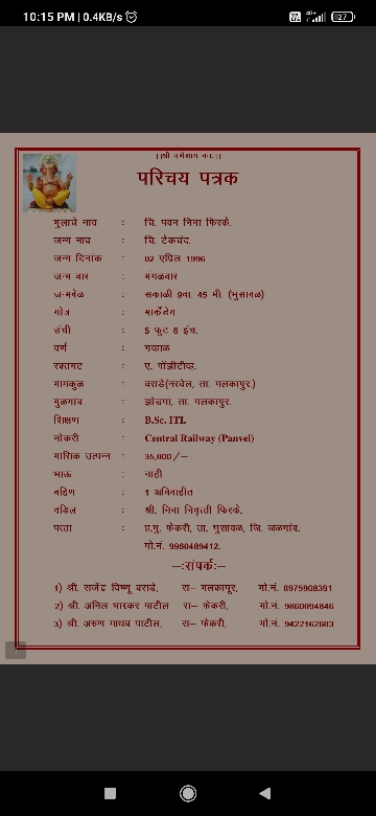 10:15 PM | 0.4KB/s
27
||श्री गणेशाय नमः||
परिचय पत्रक
मुलाचे नाव : चि. पवन निना फिरके.
जन्म नाव : चि. टेकचंद.
जन्म दिनांक : 02 एप्रिल 1996
जन्म वार : मंगळवार
जन्मवेळ : सकाळी 9वा. 45 मी. (भुसावळ)
गोत्र : मार्कंडेय
उंची : 5 फुट 8 इंच.
वर्ण : गव्हाळ
रक्तगट : ए. पॉझीटीव्ह.
मामकुळ : वराडे(नरवेल, ता. मलकापुर.)
मुळगांव : झोडगा, ता. मलकापुर.
शिक्षण : B.Sc. ITI.
नोकरी : Central Railway (Panvel)
मासिक उत्पन्न : 35,000/–
भाऊ : नाही
बहिण : 1 अविवाहीत
वडिल : श्री. निना निवृत्ती फिरके.
पत्ता : ह.मु. फेकरी, ता. भुसावळ, जि. जळगांव.
मो.नं. 9960489412.
–:संपर्क:–
1) श्री. राजेंद्र विष्णू वराडे, रा– मलकापूर, मो.नं. 8975908391
2) श्री. अनिल भास्कर पाटील रा– फेकरी, मो.नं. 9860094846
3) श्री. अरुण माधव पाटील, रा– फेकरी, मो.नं. 9422162603